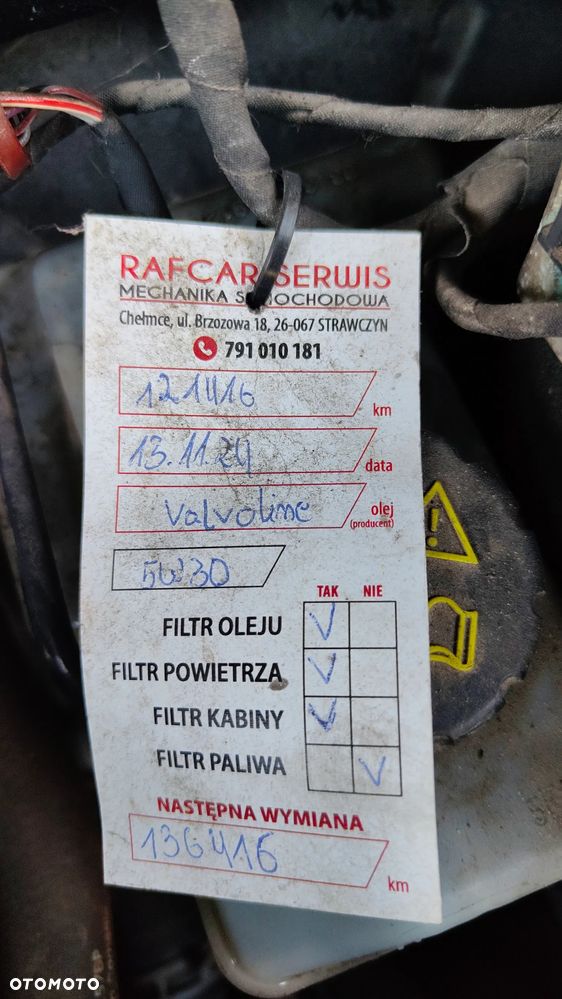 RAFCAR SERWIS
MECHANIKA SAMOCHODOWA
Chełmce, ul. Brzozowa 18, 26-067 STRAWCZYN
791 010 181
121416 km
13.11.24 data
Valvoline olej (producent)
5W30
TAK NIE
FILTR OLEJU V
FILTR POWIETRZA V
FILTR KABINY V
FILTR PALIWA V
NASTĘPNA WYMIANA
136416 km
OTOMOTO